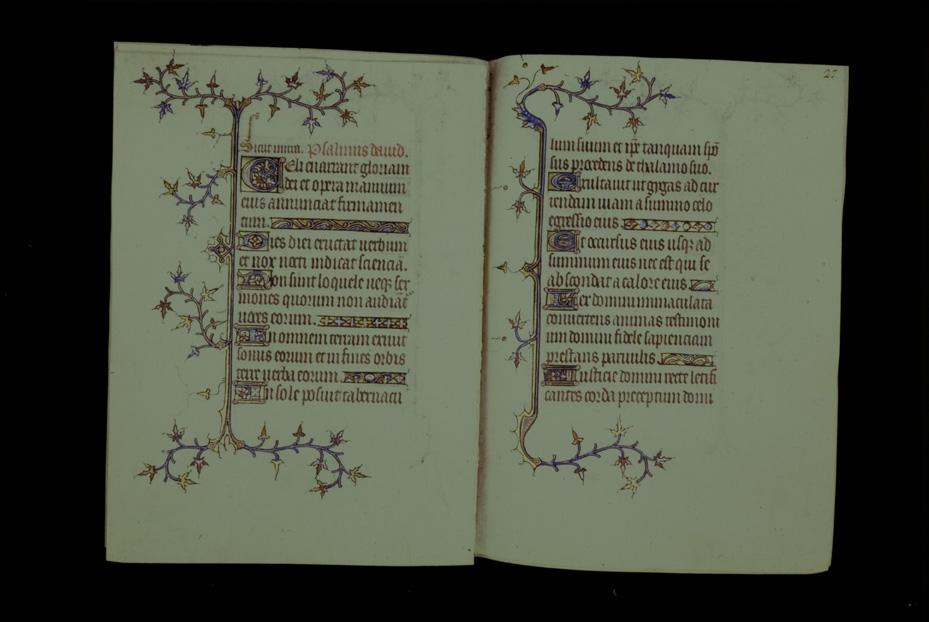 Sicut mirra. Psalmus dauid.
Celi enarrant gloriam
dei et opera manuum
eius annunciat firmamen
tum.
Dies diei eructat uerbum
et nox nocti indicat scienciā.
Non sunt loquele neqꝫ ser
mones quorum non audiāt᷑
uoces eorum.
In omnem terram exiuit
sonus eorum et in fines orbis
terre uerba eorum.
In sole posuit tabernacu
27
lum suum et ip̄e tanquam spō
sus procedens de thalamo suo.
Exultauit ut gygas ad cur
rendam uiam a summo celo
egressio eius.
Et occursus eius usqꝫ ad
summum eius nec est qui se
abscondat a calore eius.
Lex domini immaculata
conuertens animas testimoni
um domini fidele sapienciam
prestans paruulis.
Iusticie domini recte letifi
cantes corda preceptum domi